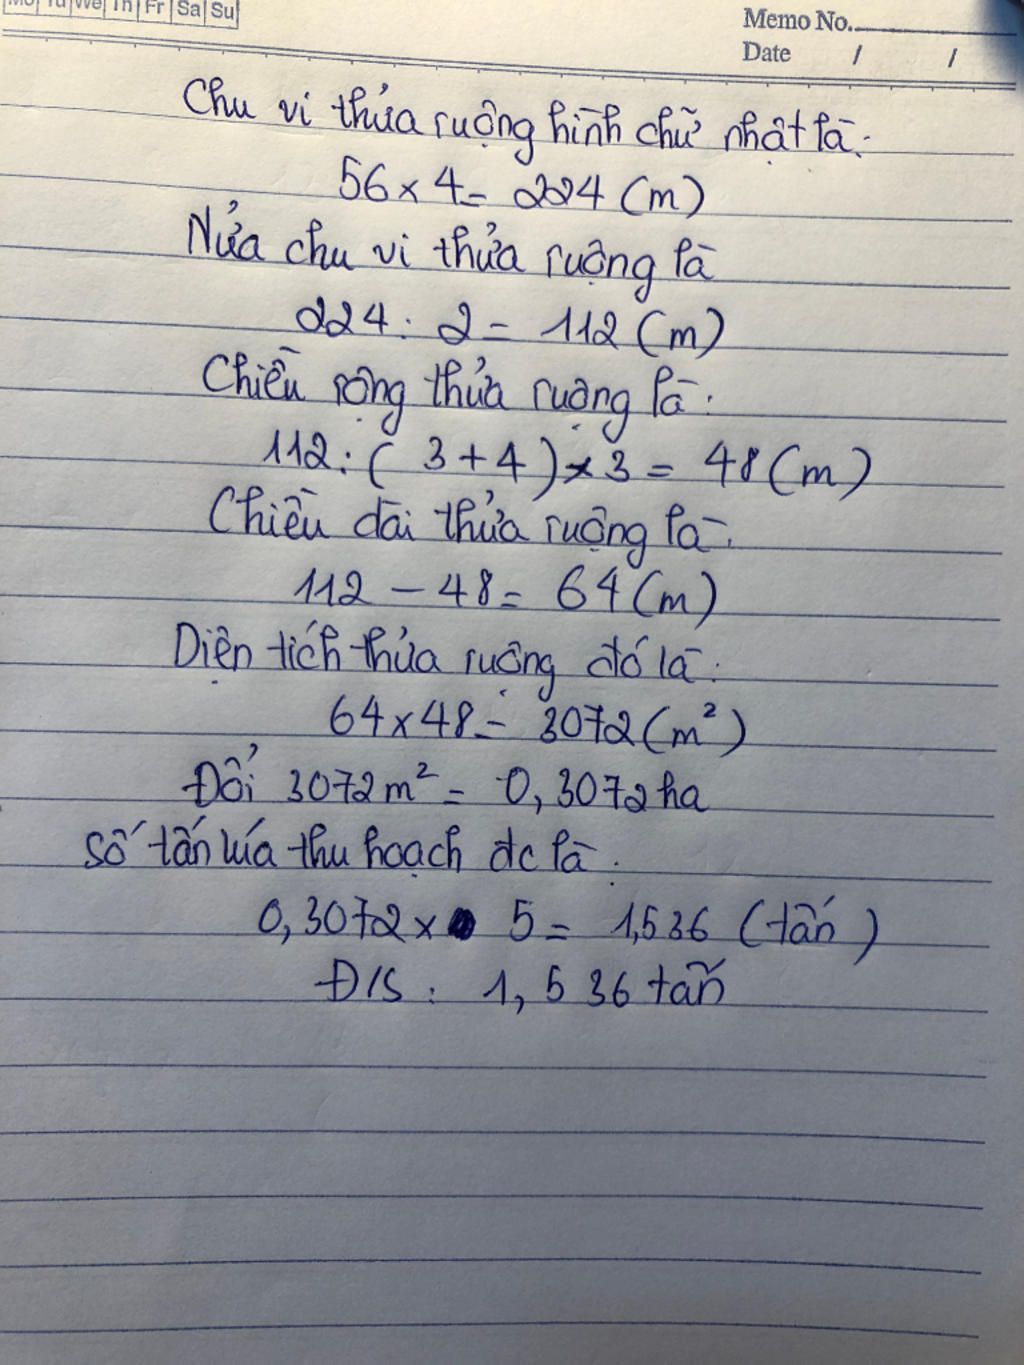 Mo Tu We Th Fr Sa Su
Memo No.
Date / /
Chu vi thửa ruộng hình chữ nhật là:
56 x 4 = 224 (m)
Nửa chu vi thửa ruộng là
224 : 2 = 112 (m)
Chiều rộng thửa ruộng là:
112 : ( 3 + 4 ) x 3 = 48 (m)
Chiều dài thửa ruộng là:
112 - 48 = 64 (m)
Diện tích thửa ruộng đó là:
64 x 48 = 3072 (m²)
Đổi 3072 m² = 0,3072 ha
Số tấn lúa thu hoạch đc là:
0,3072 x 5 = 1,536 (tấn)
Đ/S : 1,536 tấn